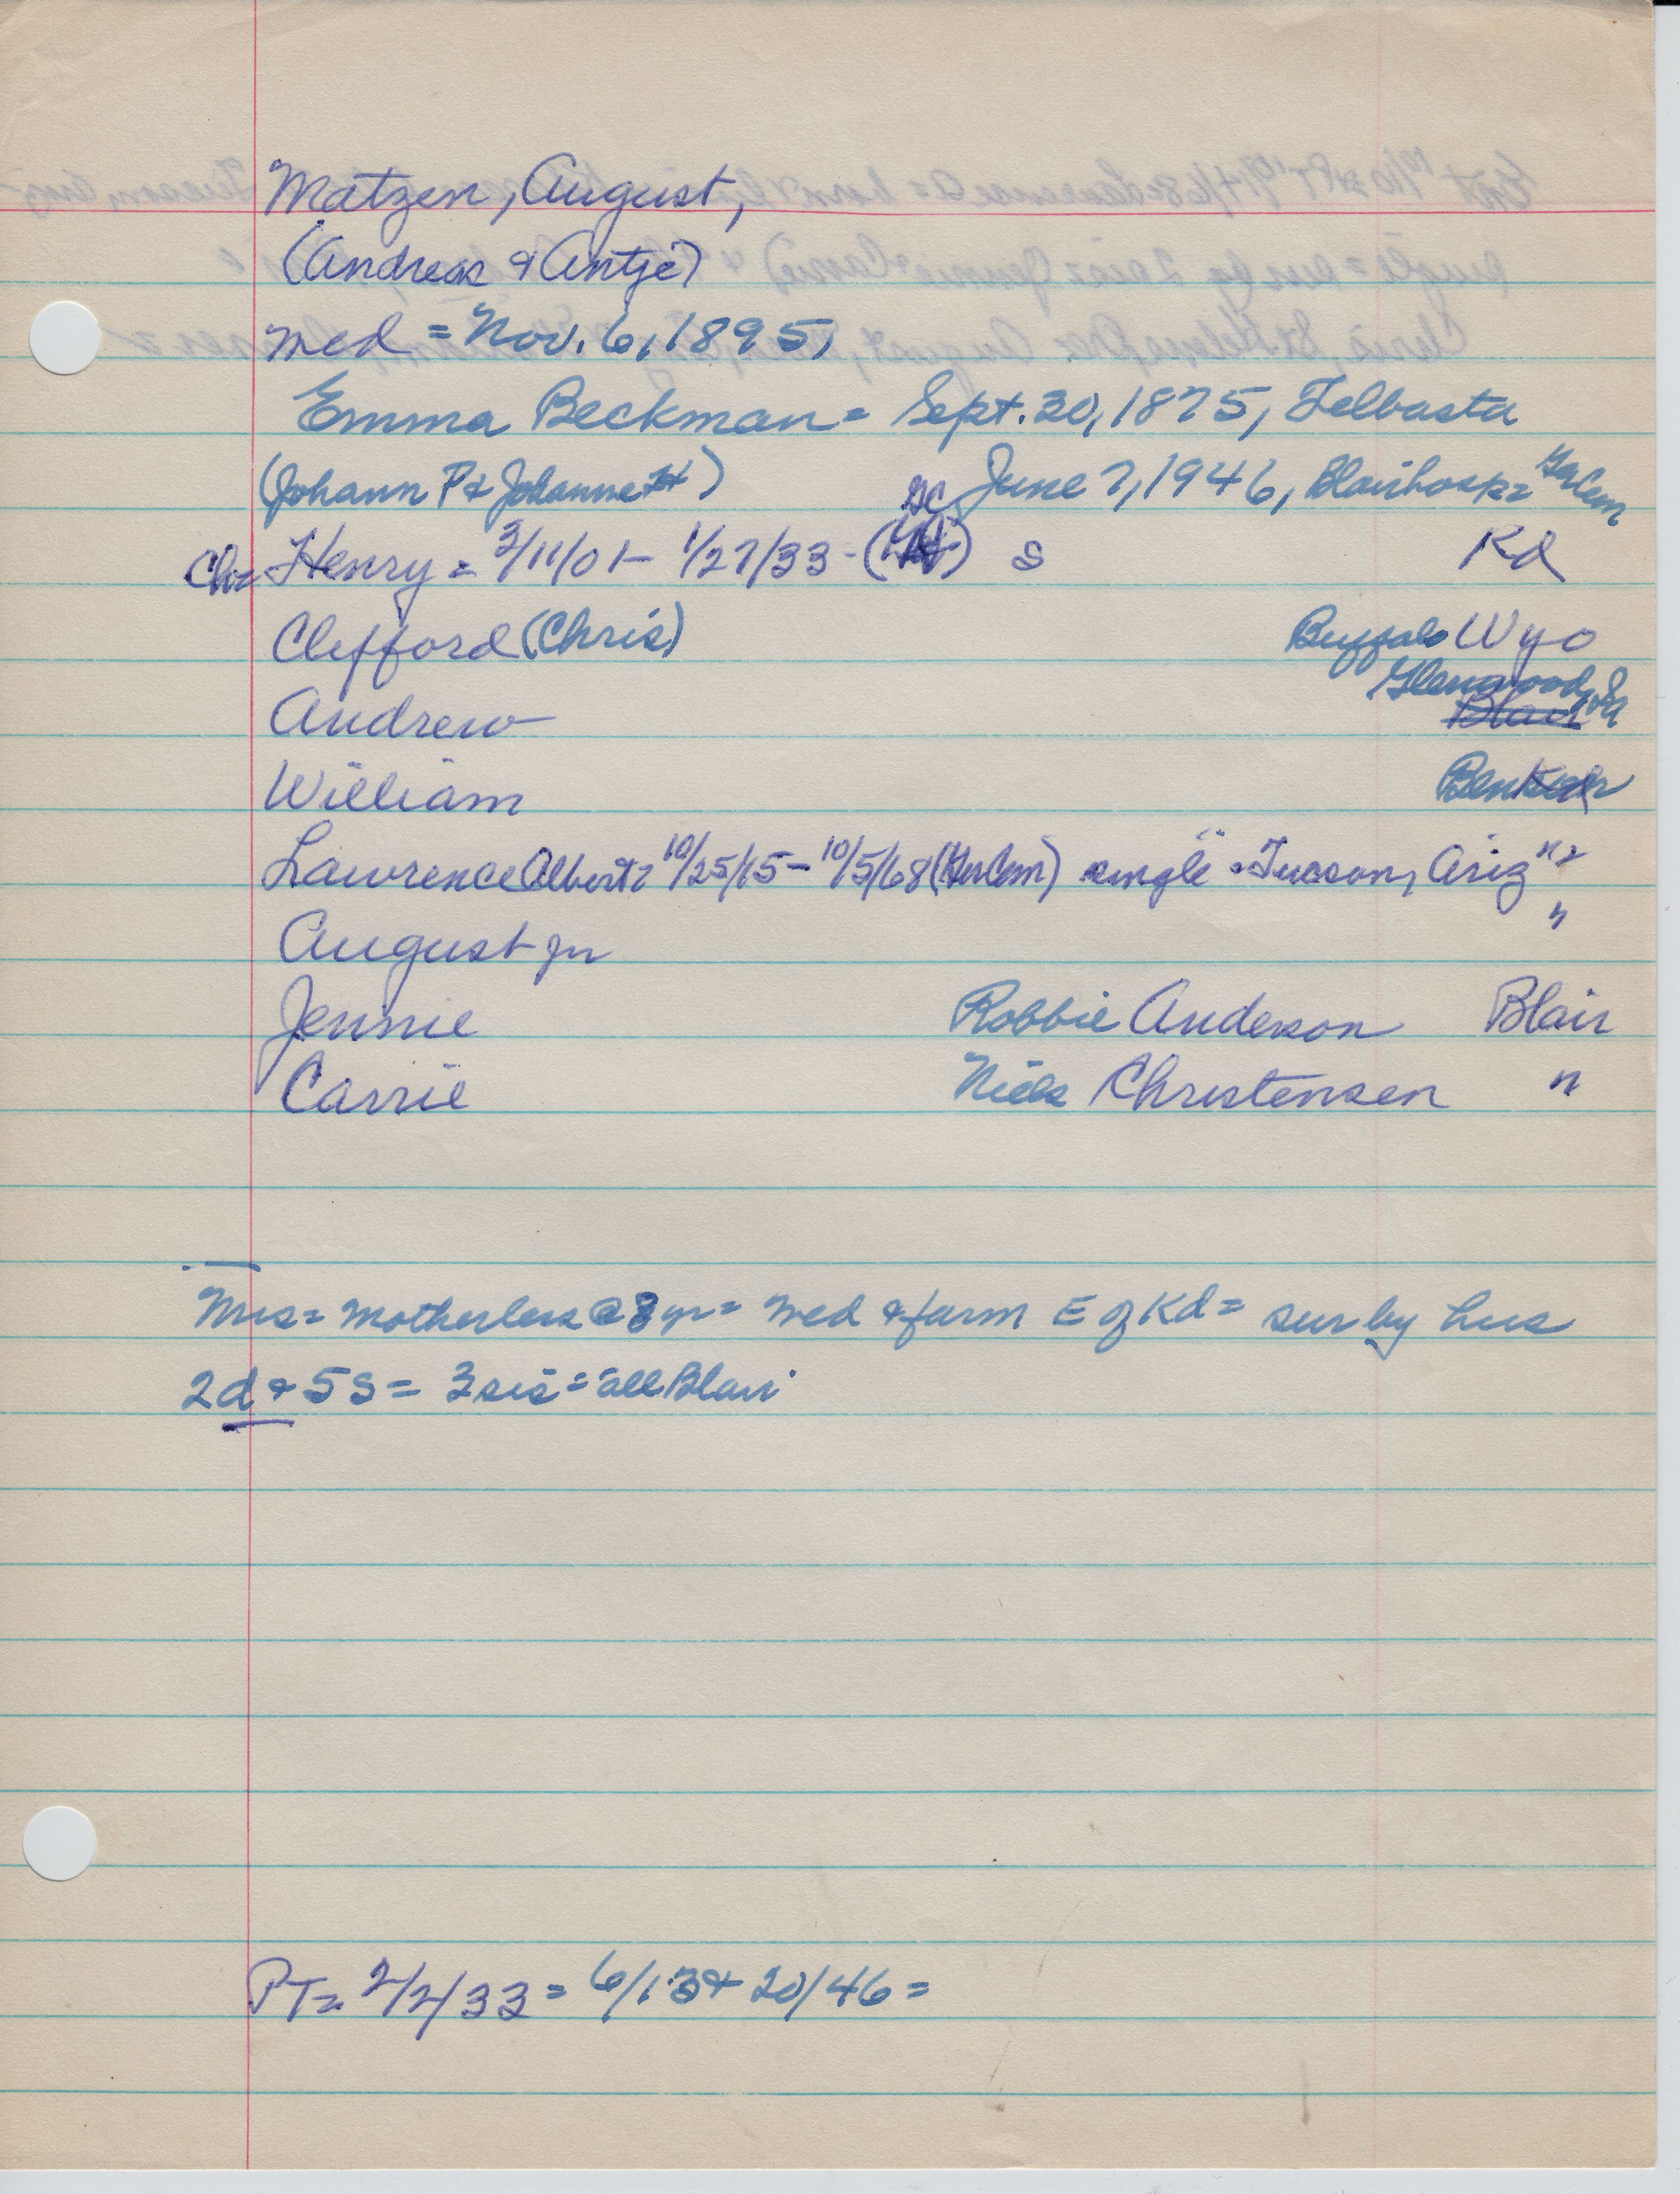 Matzen, August,
(Andreas & Antje)
wed = Nov. 6, 1895,
Emma Beckman = Sept. 30, 1875, Telbasta
(Johann P & Johanna) June 7, 1946, Blair hosp =
Ch = Henry = 3/11/01 - 1/27/33 - (GC) s Kd
Clifford (Chris) Buffalo Wyo
Andrew Glenwood, Ia
William
Lawrence Albert = 10/25/15 - 10/5/68 (Ger Cem) single = Tucson, Ariz " =
August jr "
Jennie Robbie Anderson Blair
Carrie Niels Christensen "
Mrs = motherless @ 8 yr = wed & farm E of Kd = sur by hus
2d & 5s = 3 sis = all Blair
PT = 2/2/33 = 6/13 & 20/46 =